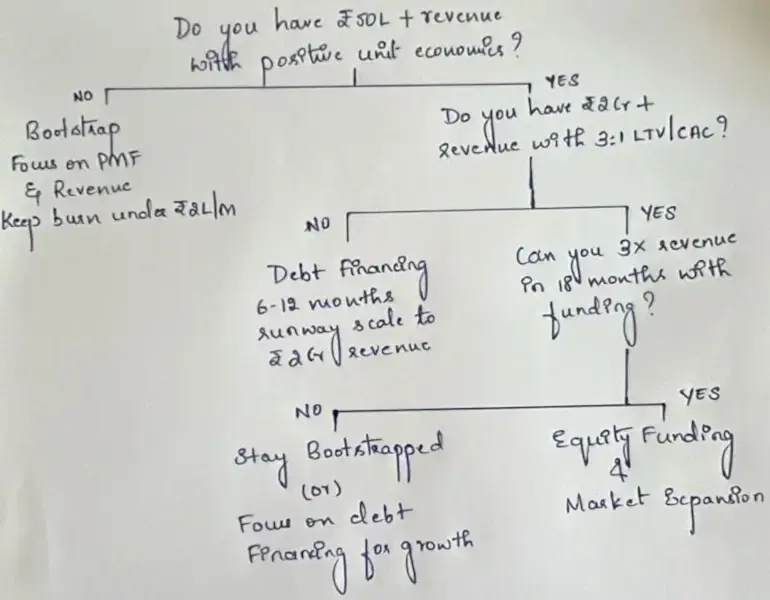 Do you have ₹50L + revenue
with positive unit economics?
NO
YES
Bootstrap
Focus on PMF
& Revenue
Keep burn under ₹2L/M
Do you have ₹2Cr +
revenue with 3:1 LTV/CAC?
NO
YES
Debt financing
6-12 months
runway scale to
₹2Cr revenue
Can you 3x revenue
in 18 months with
funding?
NO
YES
Stay Bootstrapped
(or)
Focus on debt
financing for growth
Equity Funding
&
Market Expansion